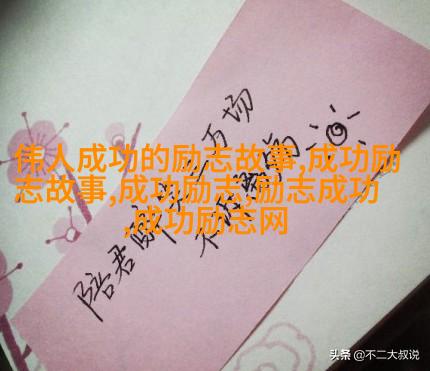 伟人成功的励志故事,成功励
志故事,成功励志,励志成功
,成功励志网
陪君
万场
不
头条 @不二大叔说